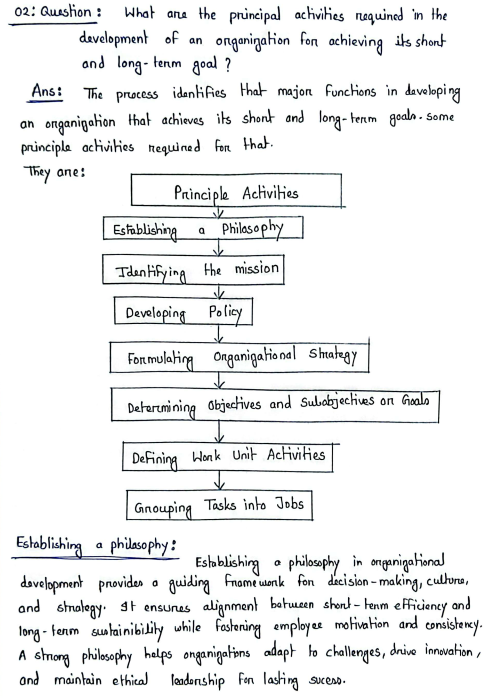 02: Question: What are the principal activities required in the
development of an organization for achieving its short
and long-term goal?
Ans: The process identifies that major functions in developing
an organization that achieves its short and long-term goals. some
principle activities required for that.
They are:
Principle Activities
Establishing a Philosophy
Identifying the mission
Developing Policy
Formulating Organizational Strategy
Determining Objectives and Subobjectives or Goals
Defining Work Unit Activities
Grouping Tasks into Jobs
Establishing a philosophy:
Establishing a philosophy in organizational
development provides a guiding framework for decision-making, culture,
and strategy. It ensures alignment between short-term efficiency and
long-term sustainibility while fastening employee motivation and consistency.
A strong philosophy helps organizations adapt to challenges, drive innovation,
and maintain ethical leadership for lasting sucess.